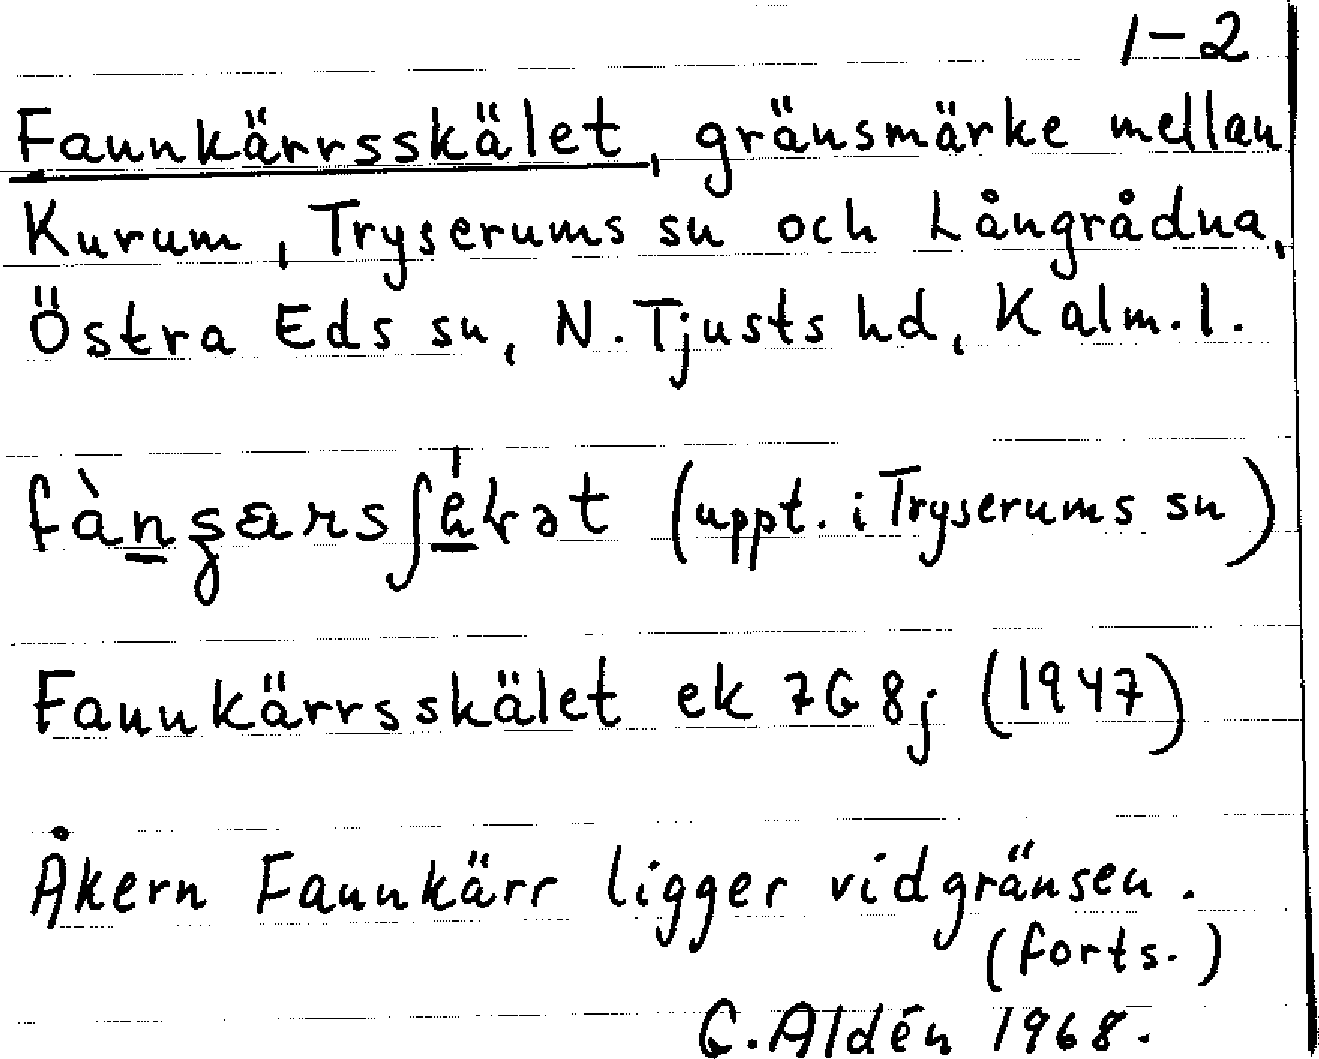 1-2
Fannkärrsskälet, gränsmärke mellan
Kurum, Tryserums sn och Långrådna,
Östra Eds sn, N. Tjusts hd, Kalm. l.
(uppt. i Tryserums sn)
Fannkärrsskälet ek 7G 8j (1947)
Åkern Fannkärr ligger vid gränsen.
(forts.)
G. Aldén 1968.